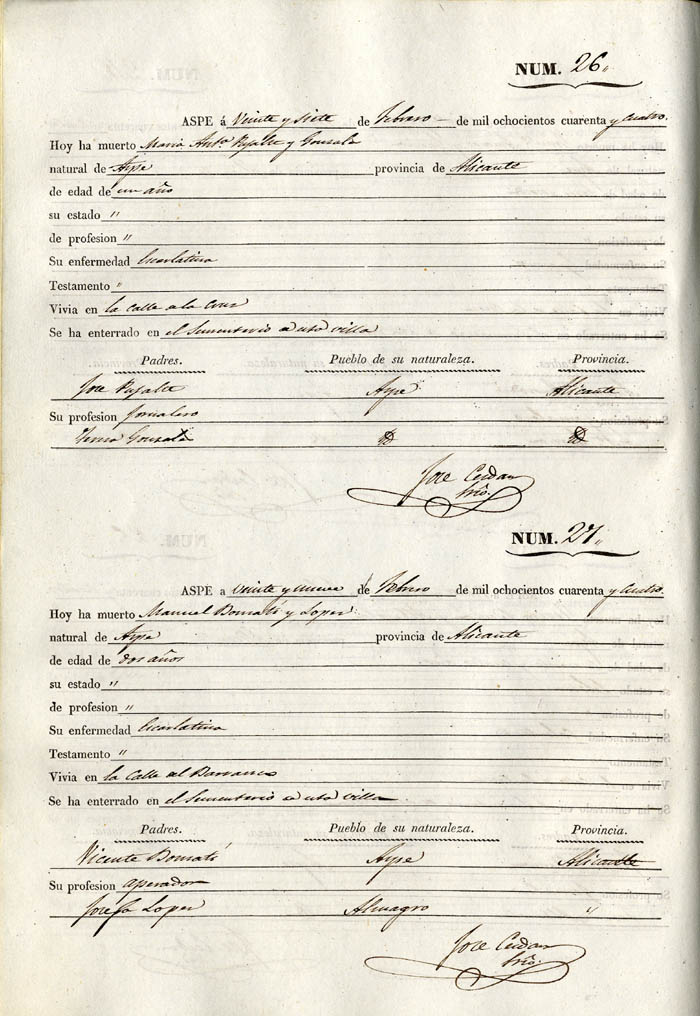 NUM. 26.
ASPE á Veinte y siete de Febrero de mil ochocientos cuarenta y cuatro.
Hoy ha muerto Maria Anta. Pujalte y Gonzale
natural de Aspe provincia de Alicante
de edad de un año
su estado "
de profesion "
Su enfermedad Escarlatina
Testamento "
Vivia en la Calle de la Cruz
Se ha enterrado en el Sementerio de esta villa
Padres. Pueblo de su naturaleza. Provincia.
Jose Pujalte Aspe Alicante
Su profesion Jornalero
Gonzale
Jose Cerdan
NUM. 27.
ASPE a veinte y nueve de Febrero de mil ochocientos cuarenta y cuatro.
Hoy ha muerto Manuel Bomati y Lopez
natural de Aspe provincia de Alicante
de edad de dos años
su estado "
de profesion "
Su enfermedad Escarlatina
Testamento "
Vivia en la Calle del Barranco
Se ha enterrado en el Sementerio de esta villa
Padres. Pueblo de su naturaleza. Provincia.
Vicente Bomati Aspe Alicante
Su profesion aperador
Josefa Lopez Almagro "
Jose Cerdan